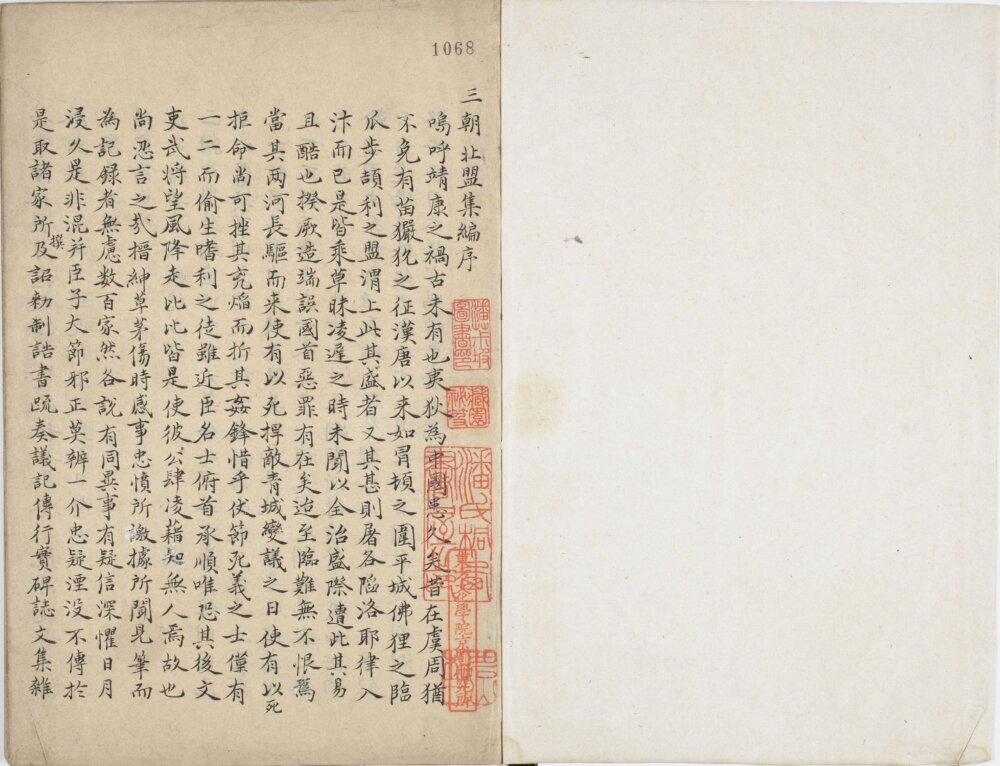 1068
三朝北盟集編序
嗚呼靖康之禍古未有也夷狄為中國患久矣昔在虞周猶
不免有苗玁狁之征漢唐以來如冒頓之圍平城佛狸之臨
瓜步頡利之盟渭上此其盛者又其甚則屠各陷洛耶律入
汴而已是皆乘草昧凌遲之時未聞以全治盛際遭此其易
且酷也揆厥造端誤國首惡罪有在矣迨至臨難無不恨焉
當其两河長驅而来使有以死捍敵青城變議之日使有以死
拒命尚可挫其兖焰而折其姦鋒惜乎伏節死義之士僅有
一二而偷生嗜利之徒雖近臣名士俯首承順唯恐其後文
吏武將望風降走比比皆是使彼公肆凌藉知無人焉故也
尚忍言之㢤搢紳草茅傷時感事忠憤所激據所聞見筆而
為記録者無慮数百家然各說有同異事有疑信深懼日月
浸久是非混并臣子大節邪正莫辨一介忠疑湮没不傳於
是取諸家所撰及詔勅制誥書疏奏議記傳行實碑誌文集雜
圖書
潘氏桐